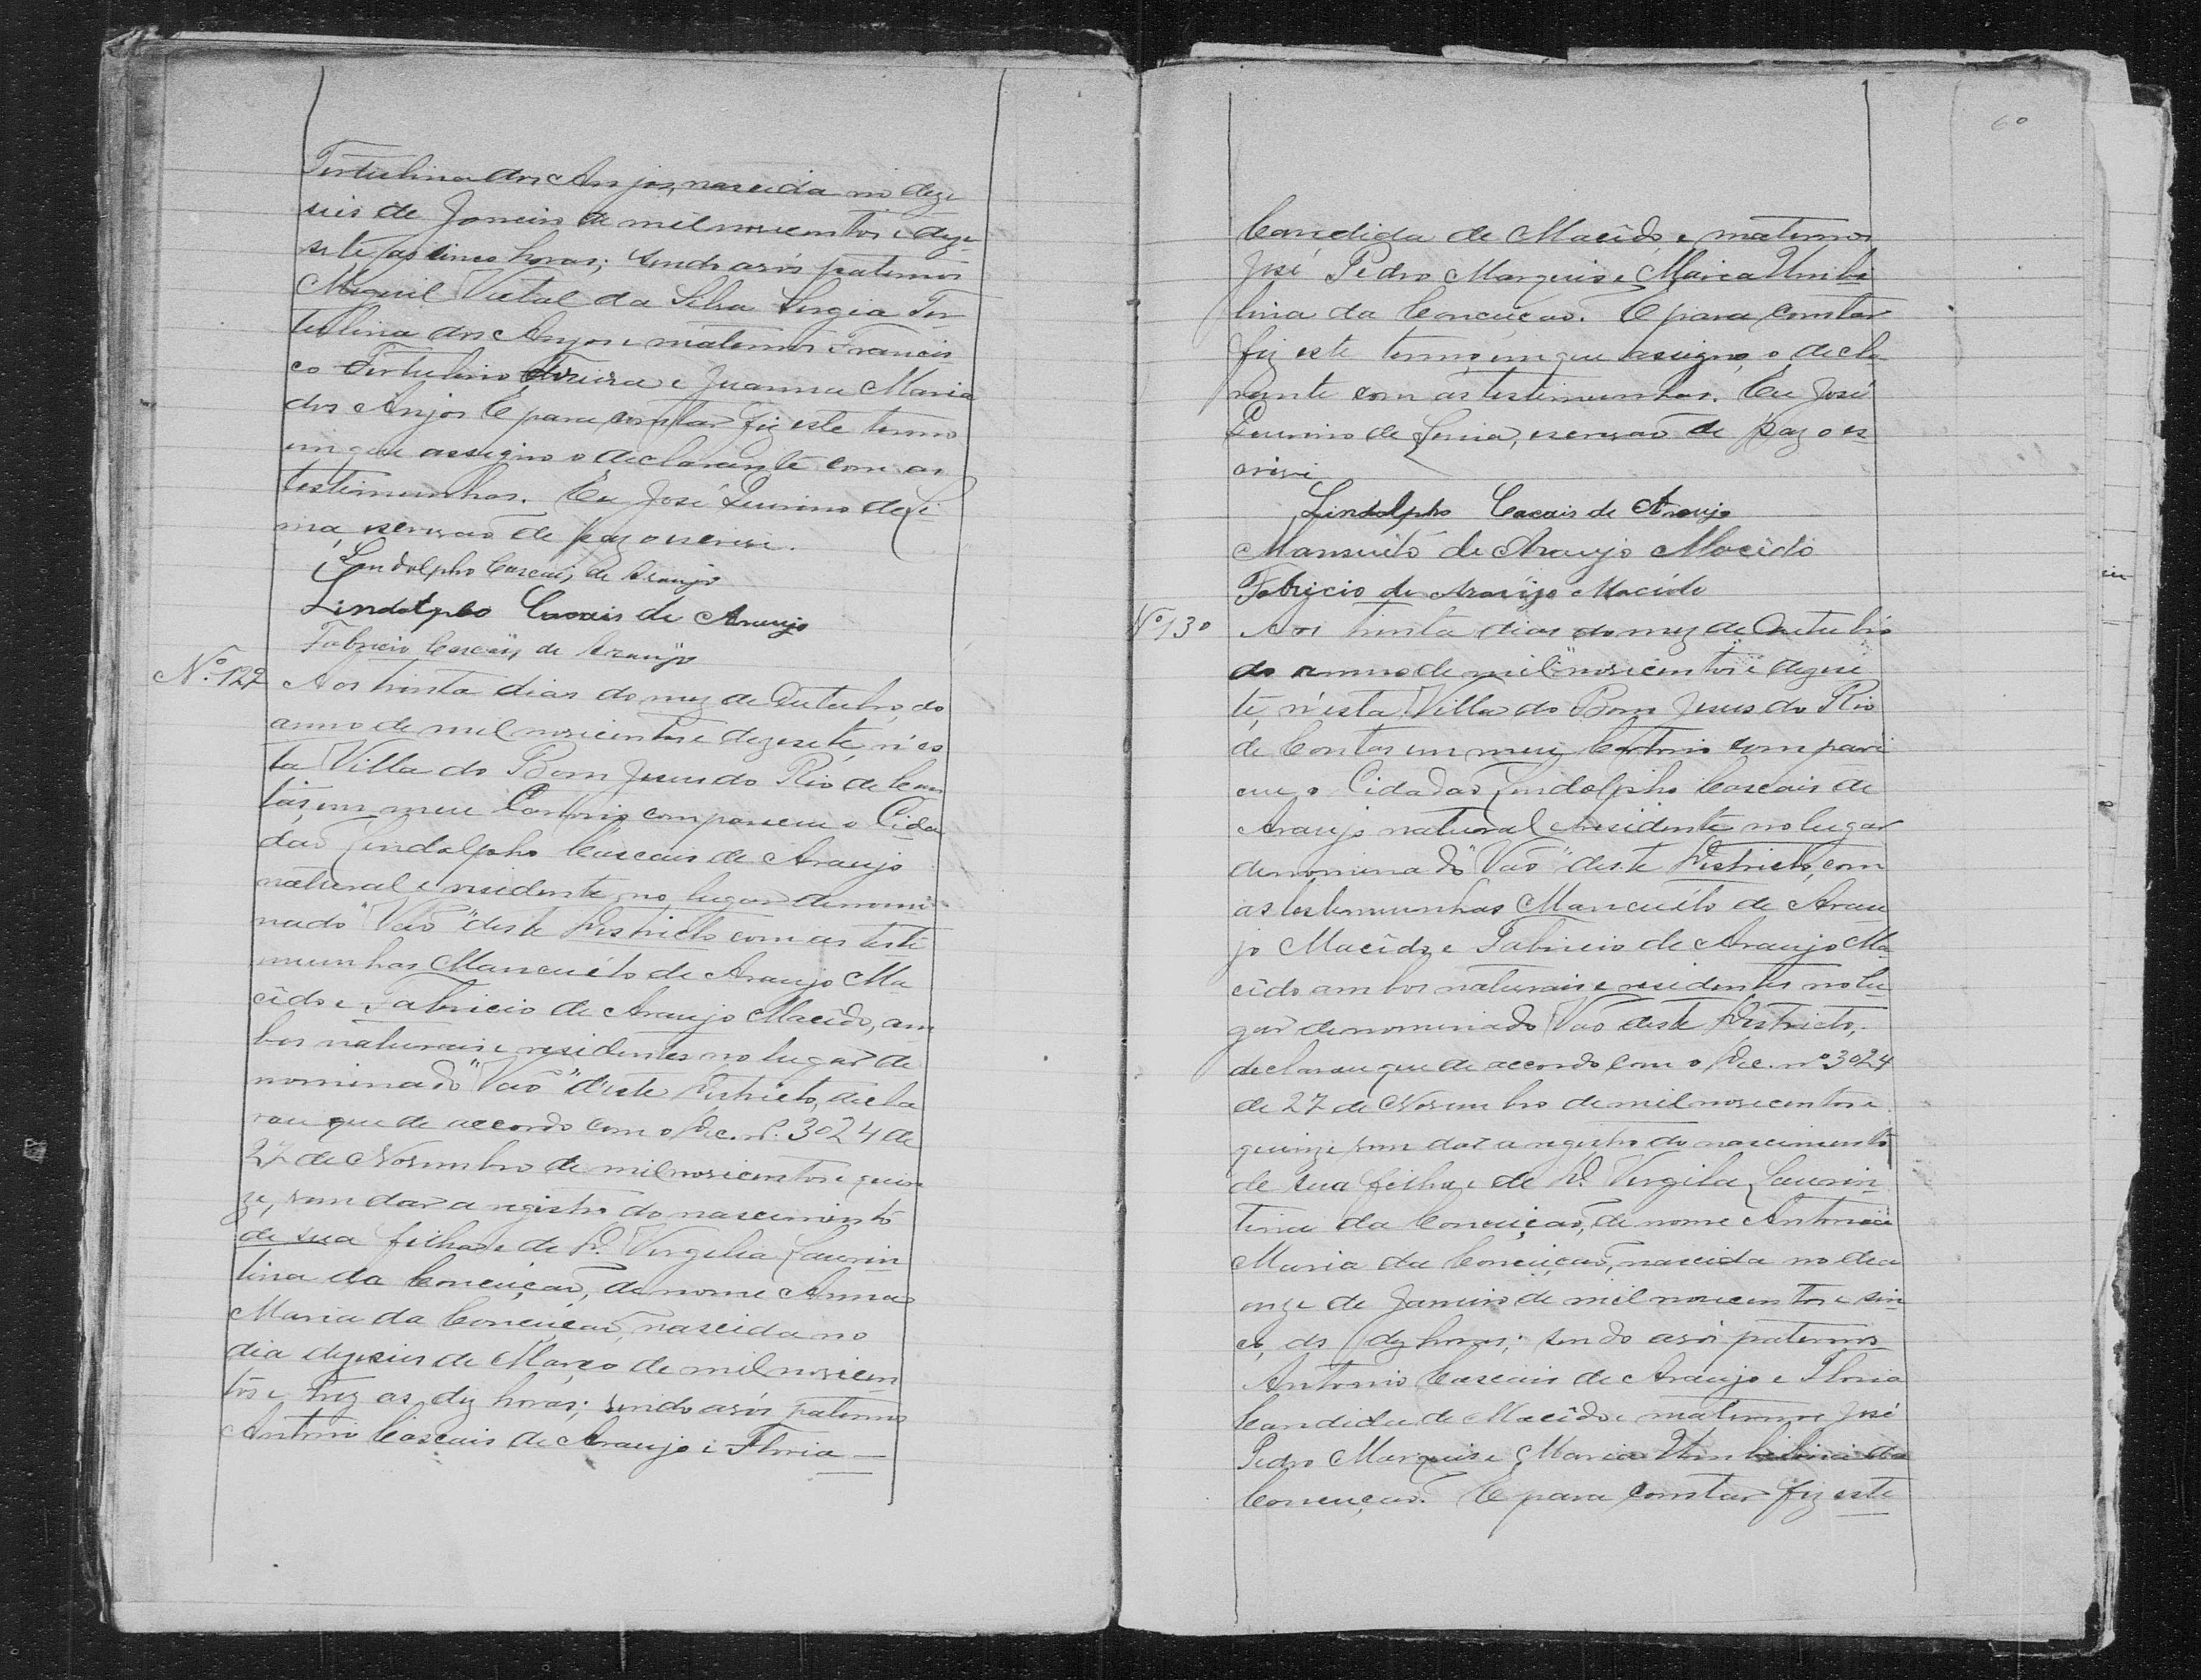 Tertulina dos Anjos, nascida no deze
seis de Janeiro de mil novicentos e deze-
sete, as cinco horas; sendo avós paternos
Miguil Victal da Silva Sergia Ter-
tulina dos Anjos e maternos Francis
co Tertulino e Juanna Maria
dos Anjos E para constar fiz este termo
em que assigno o declarante com as
testimunhas. Eu José Quirino de Li
ma, escrivão de paz o escrevi.
Lindolpho Cascais de Araujo
Lindolpho Cascais de Araujo
Fabricio Cascais de Araujo
Nº. 129
Aos trinta dias do mez de Outubro, do
anno de mil novicentos e dezesete, n'es
ta Villa do Bom Jesus do Rio de Con
tas, em meu Cartorio, compareceu o Cida
dão Lindolpho Cascais de Araujo
natural e residente, no lugar denomi-
nado "Vão" deste Districto com as teste
munhas Mancuêto de Araujo Ma
cêdo e Fabricio de Araujo Macêdo, am
bos naturais e residentes no lugar de
nominado "Vão" d'este Districto, decla
rou que de accordo com o Dec. nº. 3024 de
27 de Novembro de mil novicentos e quin
ze, vem dar a registro do nascimento
de sua filha e de D. Virgilia Laurin
tina da Conceição, de nome Anna
Maria da Conceição, nascida no
dia dezeseis de Março de mil novicen
tos e trez as dez horas; sendo avós paternos
Antonio Cascais de Araujo e Floria —
60
Candida de Macêdo e maternos
José Pedro Marques e Maria Umbe
lina da Conceição. E para constar
fiz este termo, em que assigno, o decla
rante com as testimunhas. Eu José
Quirino de Lima, escrivão de paz o es
crevi
Lindolpho Cacais de Araujo
Mansuêto de Araujo Macêdo
Fabricio de Araujo Macêdo
Nº 130
Aos trinta dias do mez de Outubro
do anno de mil novicentos e dezese
te, n'esta Villa do Bom Jesus do Rio
de Contas em meu Cartorio compare
ceu o Cidadão Lindolpho Cascais de
Araujo natural e residente no lugar
denominado "Vão" deste Districto, com
as testemunhas Mancuêto de Arau
jo Macêdo e Fabricio de Araujo Ma
cêdo ambos naturais e residentes no lu
gar denominado Vão deste Districto,
declarou que de accordo com o Dec. nº 3024
de 27 de Novembro de mil novecentos e
quinze vem dar a registro do nascimento
de sua filha e de D. Virgila Laurin
tina da Conceição, de nome Antonia
Maria da Conceição, nascida no dia
onze de Janeiro de mil novecentos e sin
co, as dez horas; sendo avós paternos
Antonio Cascais de Araujo e Floria
Candida de Macêdo e maternos José
Pedro Marques e Maria Umbelina da
Conceição. E para constar fiz este